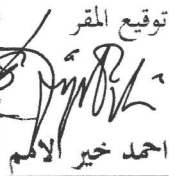 توقيع المقر
احمد خير الامم